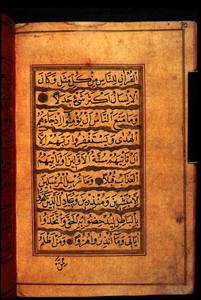 القران للناس من كل مثل وكان
الانسان اكثر شئ جدلا
وما منع الناس ان يؤمنوا اذ جاءهم
الهدى ويستغفروا ربهم الا
ان تاتيهم سنة الاولين او ياتيهم
العذاب قبلا وما نرسل المرسلين
الا مبشرين ومنذرين ويجادل الذين كفروا
بالباطل ليدحضوا به الحق واتخذوا
اياتى وما انذروا هزوا ومن اظلم
ممن